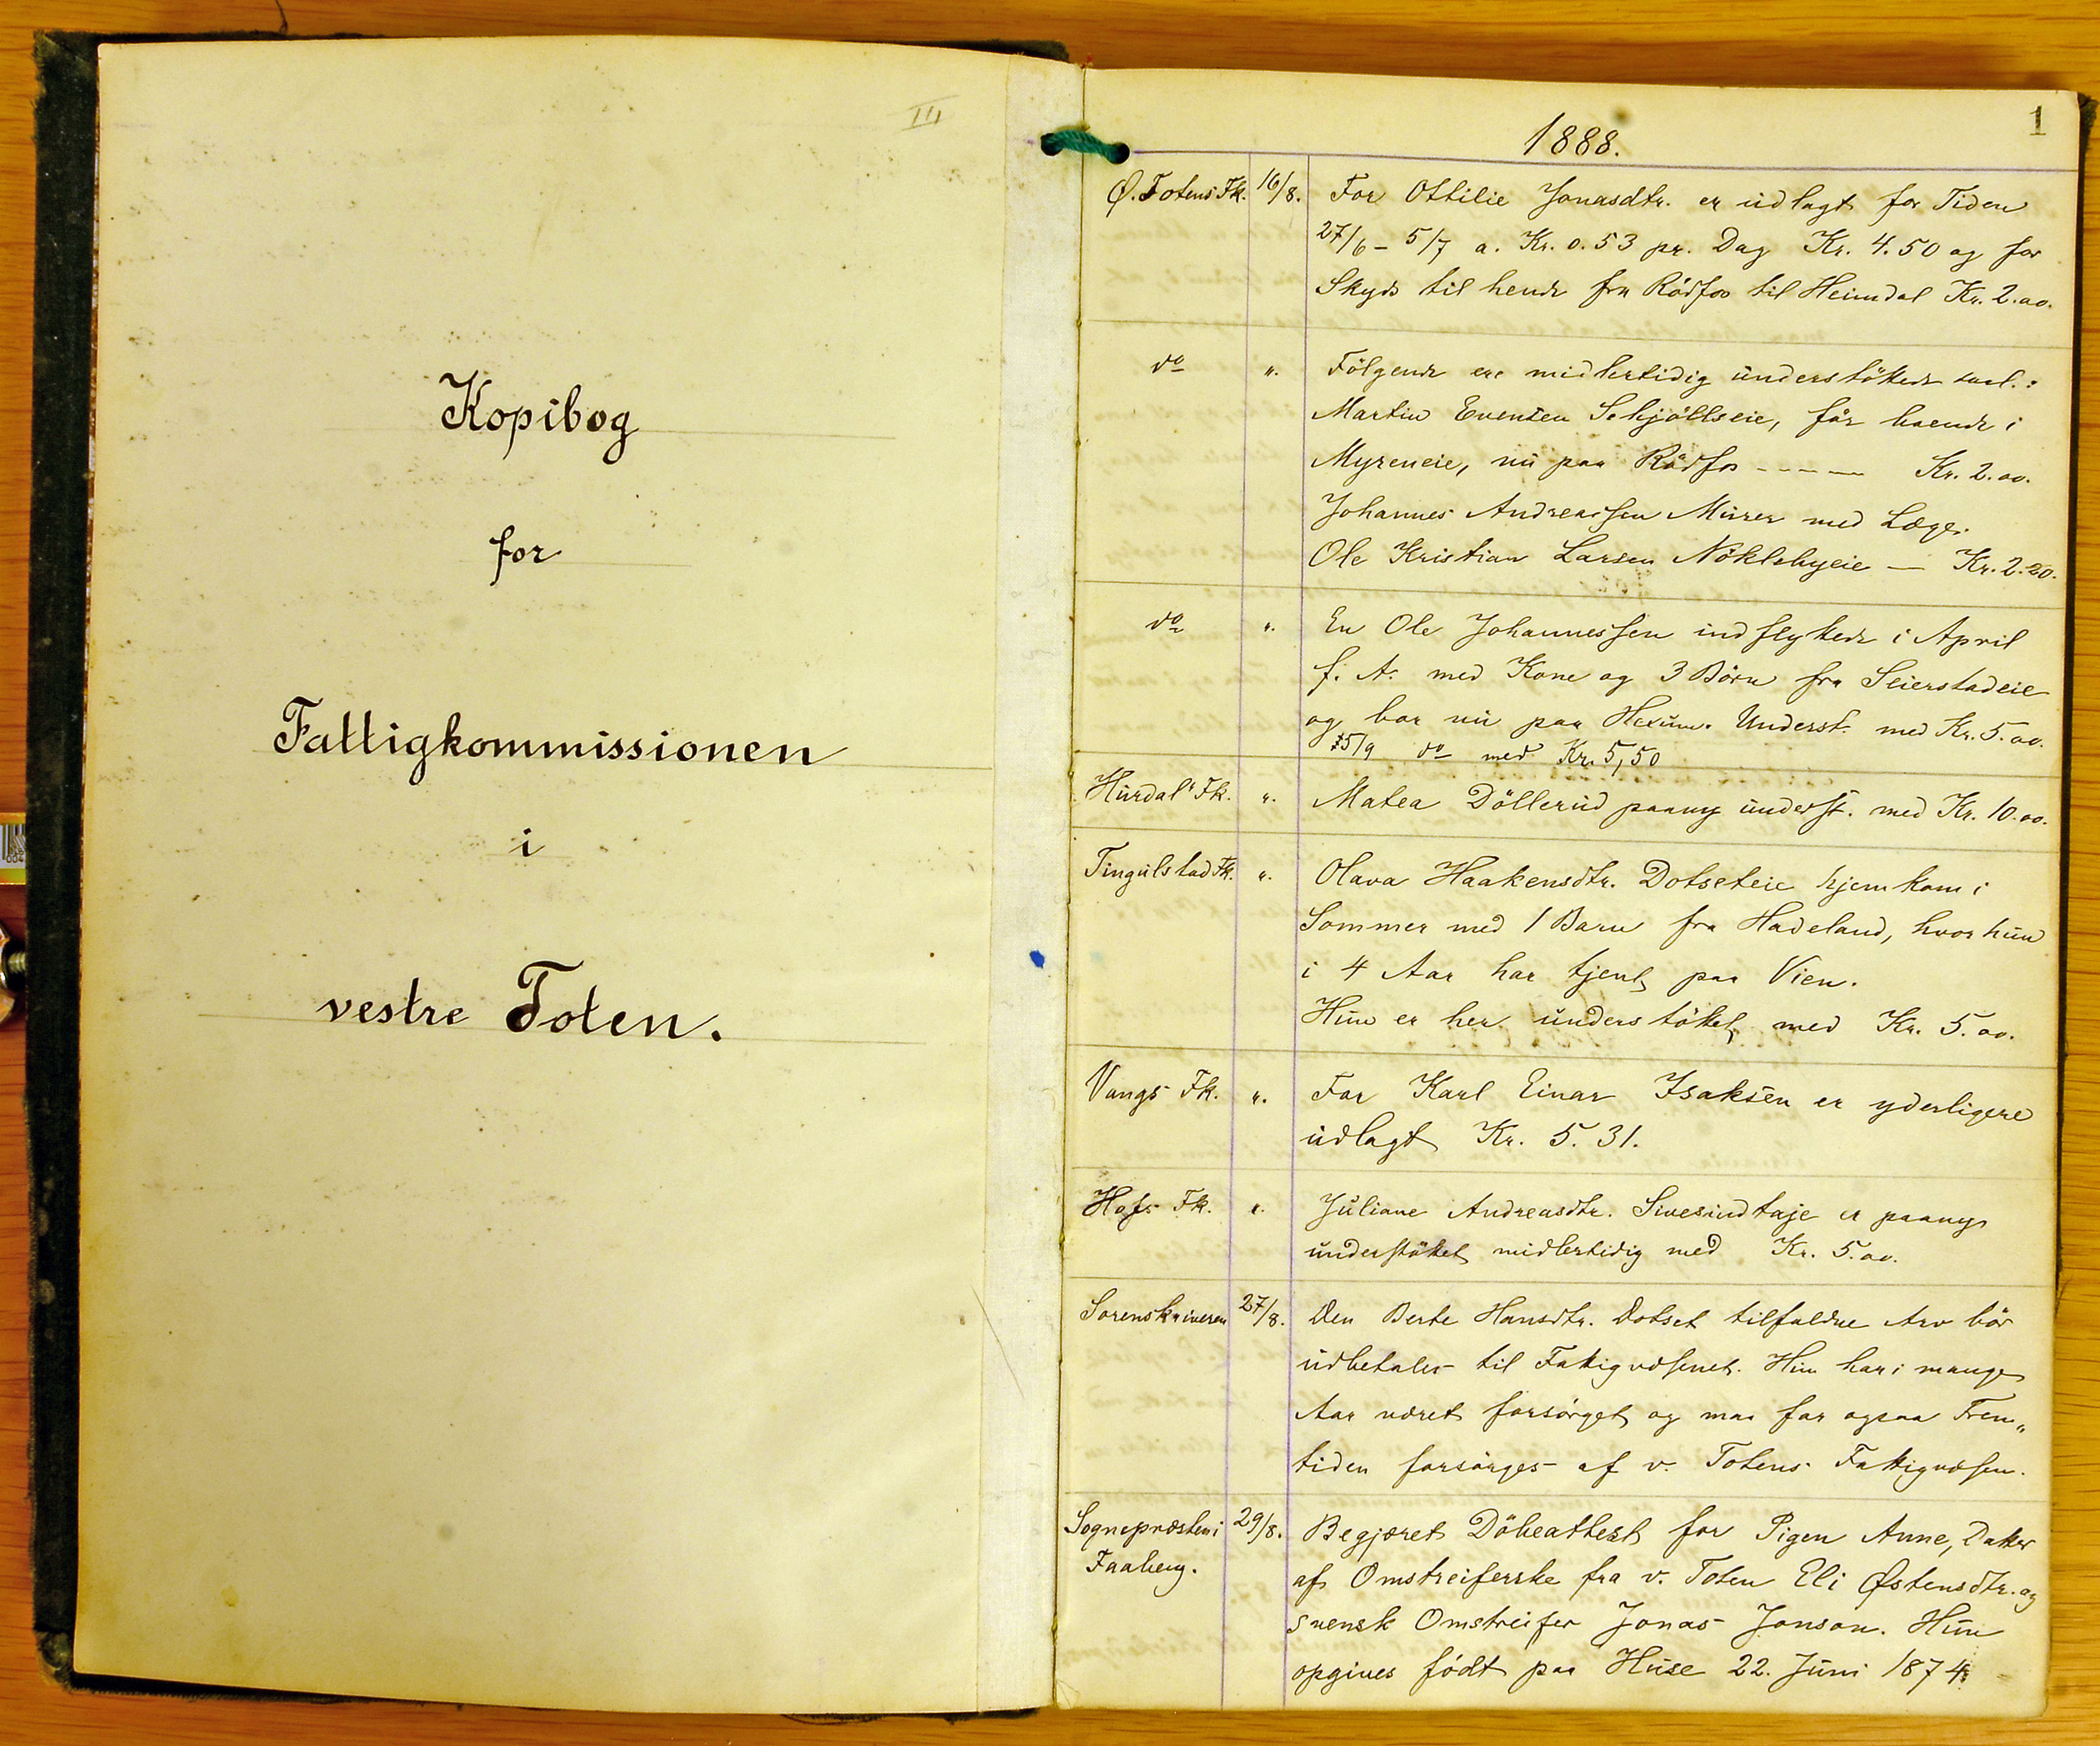 III
Kopibog
for
Fattigkommissionen
i
vestre Toten.
1
1888.
Ø. Totens Fk. 16/8. For Ottilie Jonasdtr. er udlagt for Tiden
27/6 - 5/7 a. Kr. 0.53 pr. Dag Kr. 4.50 og for
Skyds til hende fra Rödfos til Heimdal Kr. 2.00.
do ". Fölgende ere midlertidig understöttede saal.:
Martin Evensen Schjöllseie, för boende i
Myreneie, nu paa Rödfos ----- Kr. 2.00.
Johannes Andreassen Murer med Læge.
Ole Kristian Larsen Nöklebyeie — Kr. 2.20.
do ". En Ole Johannessen indflyttede i April
f. A. med Kone og 3 Börn fra Seierstadeie
og bor nu paa Hexum. Underst. med Kr. 5.00.
15/9 do med Kr. 5,50
Hurdals Fk. ". Matea Döllerud paany underst. med Kr. 10.00.
Tingulstad Fk. ". Olava Haakensdtr. Dotseteie hjemkom i
Sommer med 1 Barn fra Hadeland, hvor hun
i 4 Aar har tjent paa Vien.
Hun er her understöttet med Kr. 5.00.
Vangs Fk. ". For Karl Einar Isaksen er yderligere
udlagt Kr. 5.31.
Hofs Fk. ". Juliane Andreasdtr. er paany
understöttet midlertidig med Kr. 5.00.
Sorenskriveren 27/8. Den Berte Hansdtr. Dotset tilfaldne Arv bör
udbetales til Fattigvæsenet. Hun har i mange
Aar været forsörget og maa for ogsaa Frem„
tiden forsörges af v. Totens Fattigvæsen.
Sognepræsten i 29/8. Begjæret Döbeattest for Pigen Anne, Datter
Faaberg. af Omstreiferske fra v. Toten Eli Østensdtr. og
svensk Omstreifer Jonas Jonson. Hun
opgives födt paa Huse 22. Juni 1874.